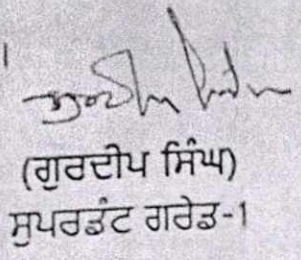 (ਗੁਰਦੀਪ ਸਿੰਘ)
ਸੁਪਰਡੰਟ ਗਰੇਡ-1